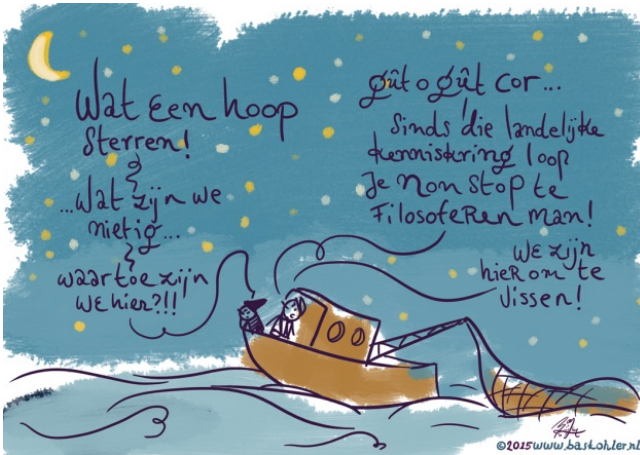 Wat een hoop
sterren!
...wat zijn we
nietig...
waartoe zijn
we hier?!!!
gût o gût Cor...
Sinds die landelijke
kenniskring loop
je non stop te
filosoferen man!
we zijn
hier om te
vissen!
©2015www.baskohler.nl